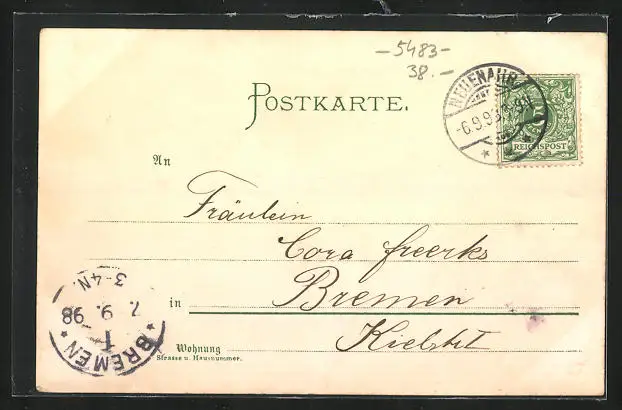 -5483-
38.-
POSTKARTE.
NEUENAHR
-6.9.98
REICHSPOST
An
Fräulein
Cora Freerks
in Bremen
Kielstrt
Wohnung
Strasse u. Hausnummer.
3-4N.
7. 9. 98
1
* BREMEN *